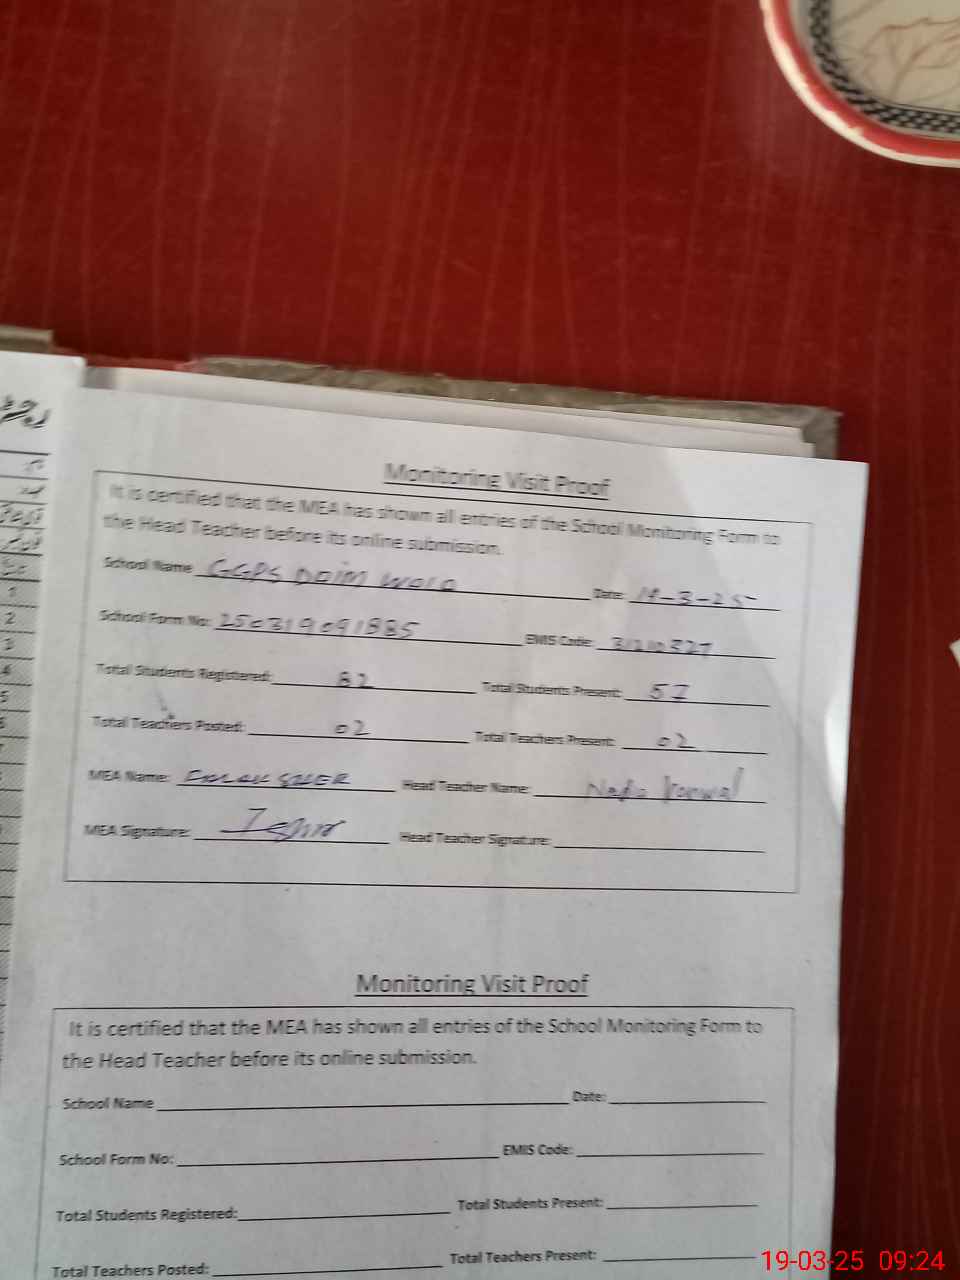 Monitoring Visit Proof
It is certified that the MEA has shown all entries of the School Monitoring Form to
the Head Teacher before its online submission.
School Name GGPS Date: 19-3-25
School Form No: 250319091885 EMIS Code: 31210327
Total Students Registered: 82 Total Students Present: 57
Total Teachers Posted: 02 Total Teachers Present: 02
MEA Name: SHER Head Teacher Name:
MEA Signature: Head Teacher Signature:
Monitoring Visit Proof
It is certified that the MEA has shown all entries of the School Monitoring Form to
the Head Teacher before its online submission.
School Name Date:
School Form No: EMIS Code:
Total Students Registered: Total Students Present:
Total Teachers Posted: Total Teachers Present:
1
2
3
4
5
19-03-25 09:24